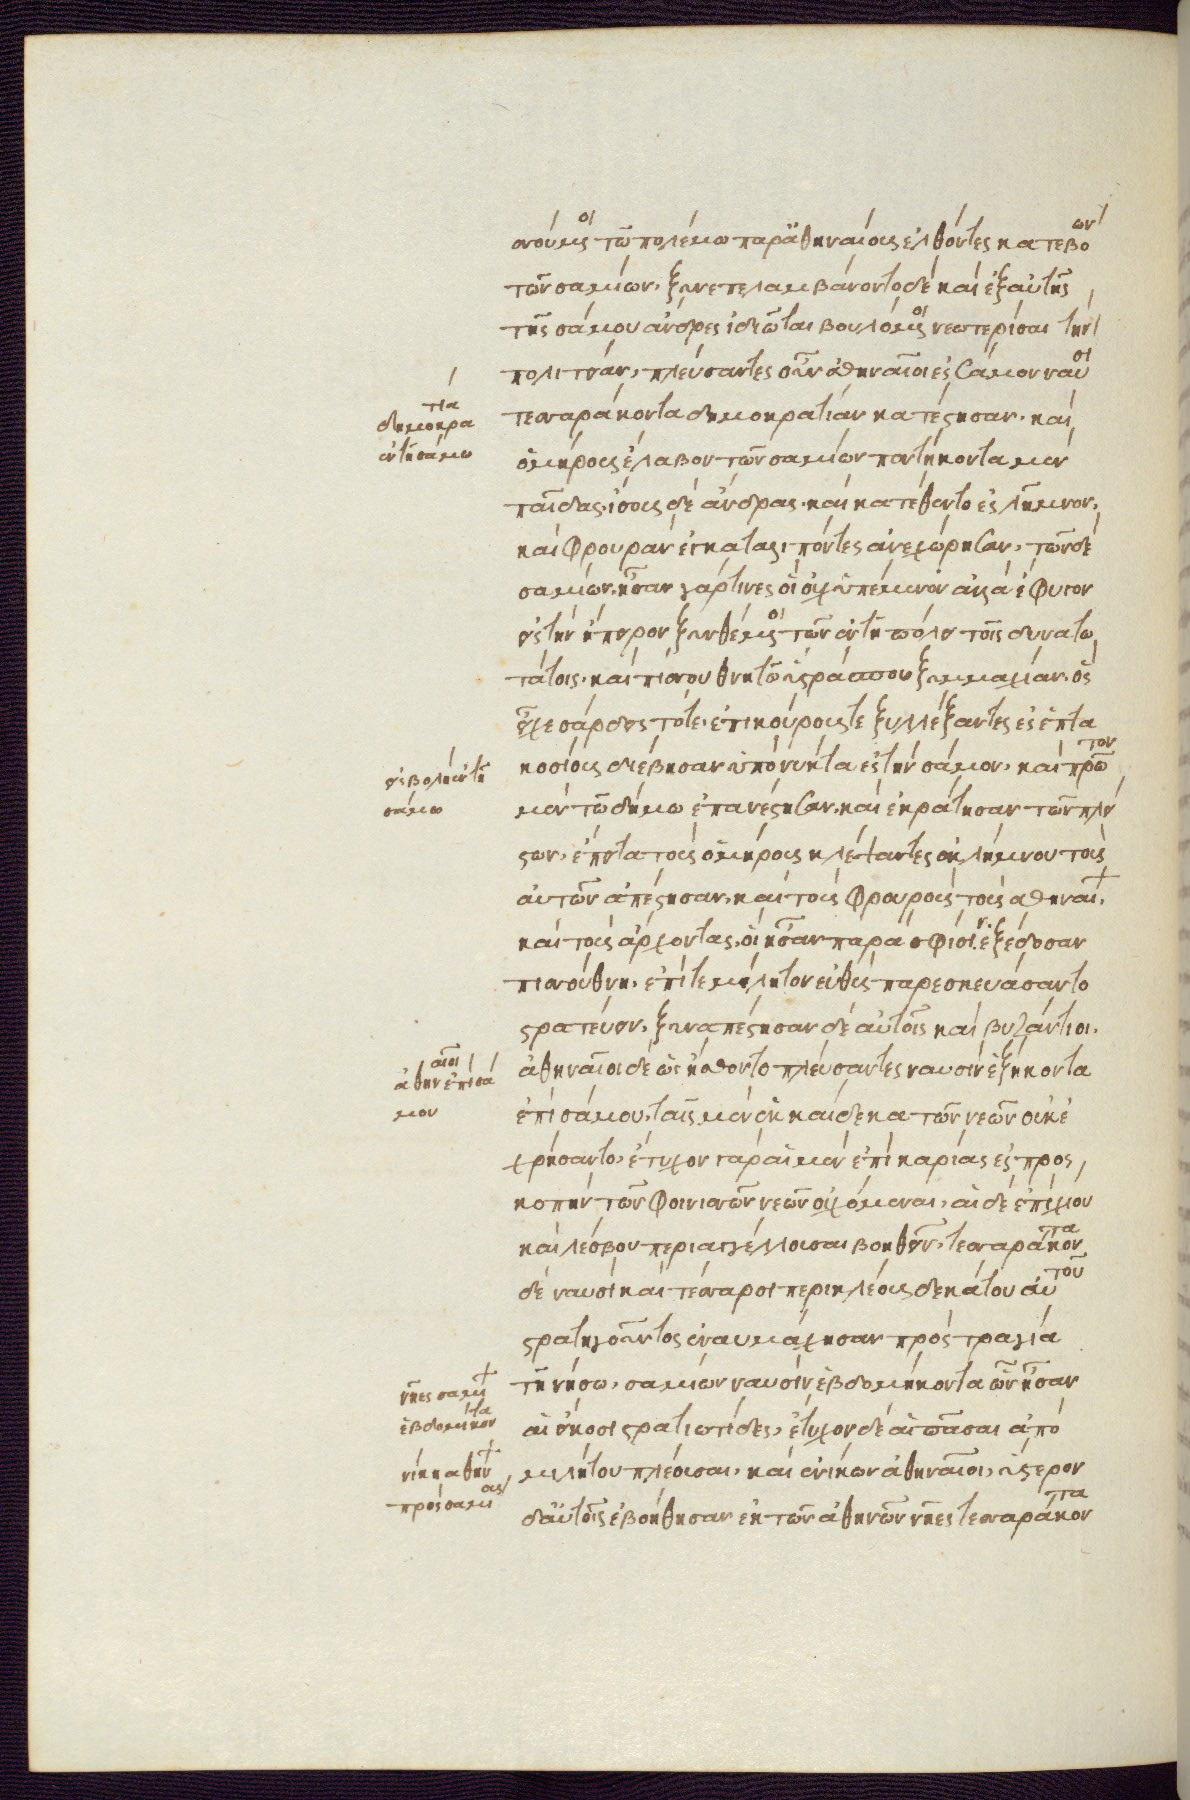 σσούμενοι τῶ πολέμω παρ' ἀθηναίους ἐλθόντες κατεβόων
τῶν σαμίων. ξυνεπελαμβάνοντο δὲ καὶ ἐξ αὐτῆς
τῆς σάμου ἄνδρες ἰδιῶται βουλόμενοι νεωτερίσαι τὴν
πολιτείαν, πλεύσαντες οὖν ἀθηναῖοι ἐς σάμον ναυσὶ
τεσσαράκοντα δημοκρατίαν κατέστησαν. καὶ
δημοκρατία
ἐν τῆ σάμω
ὁμήρους ἔλαβον τῶν σαμίων πεντήκοντα μὲν
παῖδας, ἴσους δὲ ἄνδρας. καὶ κατέθεντο ἐς λῆμνον,
καὶ φρουρὰν ἐγκαταλιπόντες ἀνεχώρησαν, τῶν δὲ
σαμίων, ἦσαν γάρ τινες οἳ οὐχ ὑπέμενον ἀλλὰ ἔφυγον
εἰς τὴν ἤπειρον ξυνθέμενοι τῶν ἐν τῆ πόλει τοῖς δυνατω
τάτοις, καὶ πισσούθνη τῶ ὑστράσπου ξυμμαχίαν, ὃς
εἶχε σάρδεις τότε, ἐπικούρους τε ξυλλέξαντες ἐς ἑπτα
κοσίους διέβησαν ὑπὸ νύκτα ἐς τὴν σάμον, καὶ πρῶτον
εἰσβολὴ ἐν τῆ
σάμω
μὲν τῶ δήμω ἐπανέστησαν, καὶ ἐκράτησαν τῶν πλεί
στων, ἔπειτα τοὺς ὁμήρους κλέψαντες ἐκ λήμνου τοὺς
αὐτῶν ἀπέστησαν, καὶ τοὺς φρουροὺς τοὺς ἀθηναίων
καὶ τοὺς ἄρχοντας, οἳ ἦσαν παρὰ σφίσιν ἐξέδοσαν
πισσούθνη, ἐπί τε μίλητον εὐθὺς παρεσκευάσαντο
στρατεύειν, ξυναπέστησαν δὲ αὐτοῖς καὶ βυζάντιοι.
ἀθηναῖοι δὲ ὡς ἤσθοντο πλεύσαντες ναυσὶν ἑξήκοντα
ἀθηναῖοι ἐπὶ σά
μον
ἐπὶ σάμου, ταῖς μὲν ἓκ καὶ δεκα τῶν νεῶν οὐκ ἐ
χρήσαντο, ἔτυχον γὰρ αἱ μὲν ἐπὶ καρίας ἐς προς
κοπὴν τῶν φοινισσῶν νεῶν οἰχόμεναι, αἱ δὲ ἐπὶ χίου
καὶ λέσβου περιαγγέλλουσαι βοηθεῖν, τεσσαράκοντα
δὲ ναυσὶ καὶ τέσσαρσι περικλέους δεκάτου αὐτοῦ
στρατηγοῦντος ἐναυμάχησαν πρὸς τραγία
τῆ νήσω, σαμίων ναυσὶν ἑβδομήκοντα ὧν ἦσαν
νῆες σαμίων
ἑβδομήκοντα
αἱ εἴκοσι στρατιώτιδες, ἔτυχον δὲ αἱ πᾶσαι ἀπὸ
μιλήτου πλέουσαι, καὶ ἐνίκων ἀθηναῖοι, ὕστερον
νίκη ἀθηναίων
πρὸς σαμίους
δ' αὐτοῖς ἐβοήθησαν ἐκ τῶν ἀθηνῶν νῆες τεσσαράκοντα